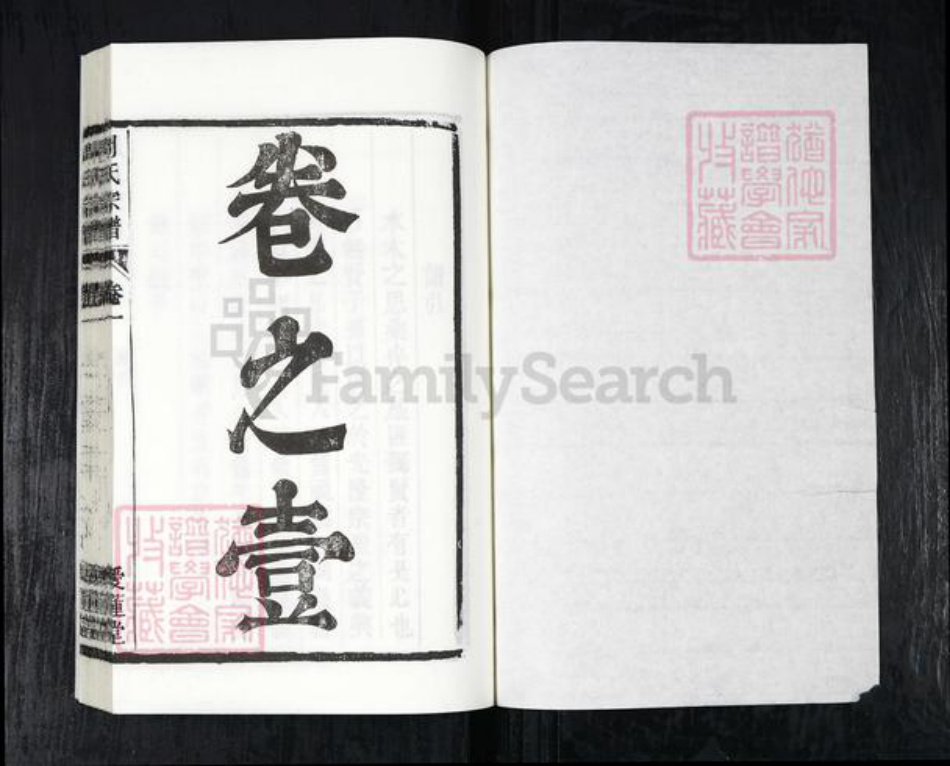 猶他家
譜學會
收藏
卷之壹
周氏宗譜
卷一
愛蓮堂
猶他家
譜學會
收藏
FamilySearch